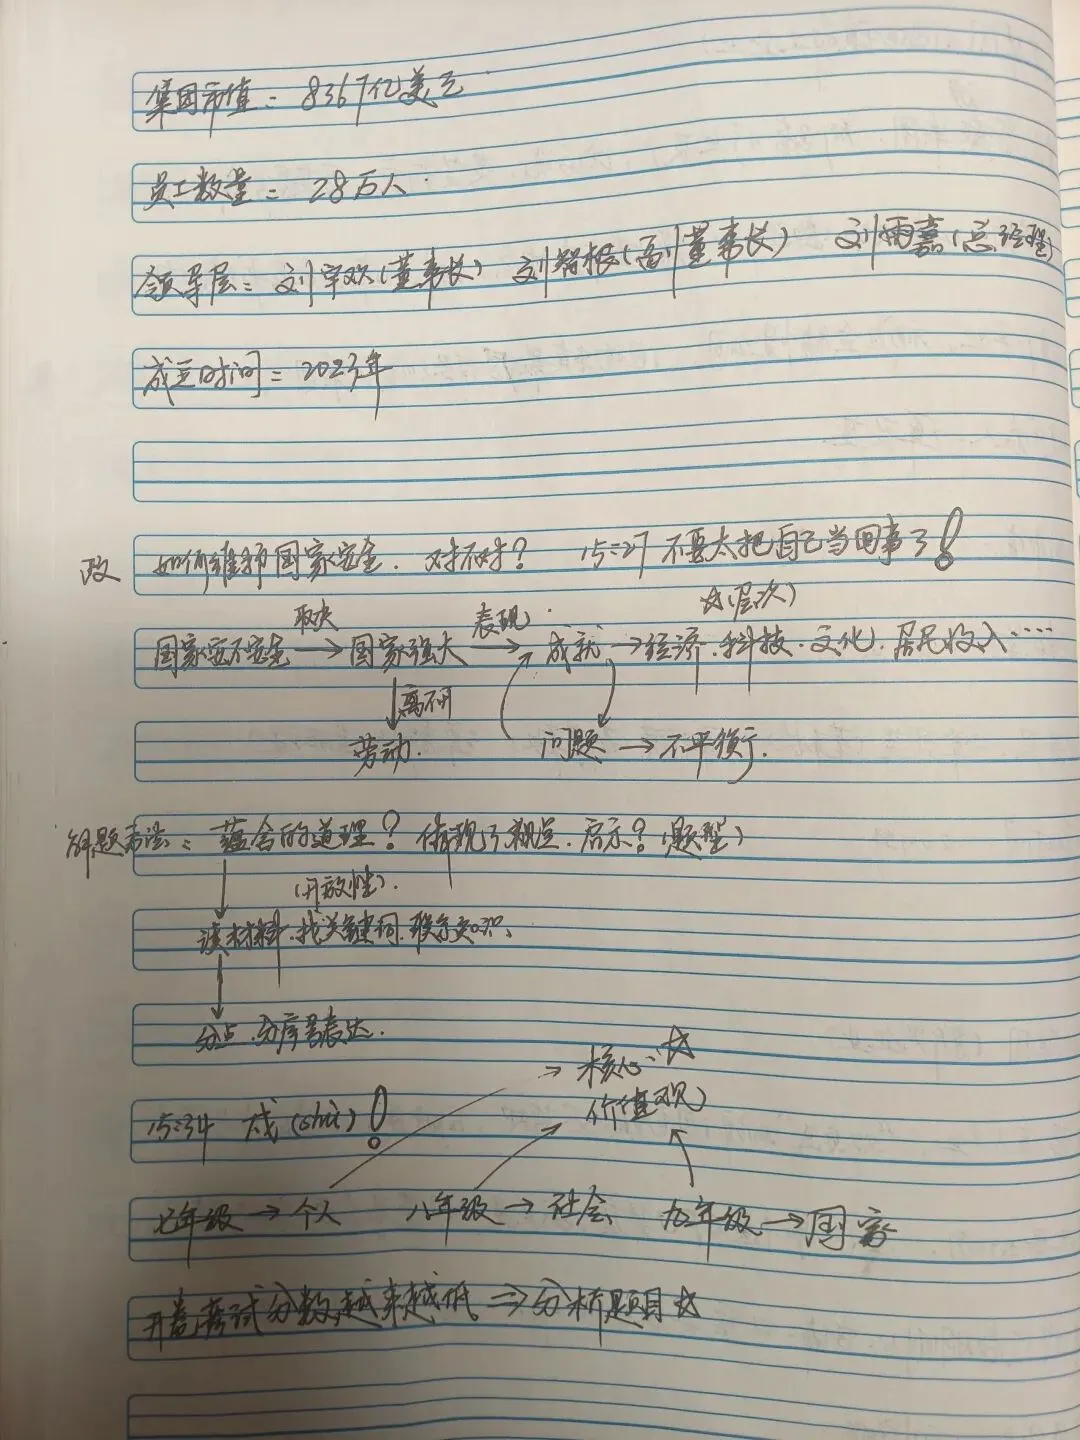 集团市值：8367亿美元
员工数量：28万人.
领导层：刘宇欢(董事长) 刘智根(副董事长) 刘雨嘉(总经理)
成立时间：2023年
政 如何维护国家安全. 对不对? 15:27 不要太把自己当回事了!
取决 表现. ☆(层次)
国家安不安全→国家强大→成就→经济.科技.文化.居民收入……
离不开
劳动. 问题→不平衡.
解题方法：蕴含的道理? 体现了观点.启示?(题型)
(开放性).
读材料.找关键词.联系知识.
分点.分序号表达.
核心☆
价值观
15:34 (shu)!
七年级→个人 八年级→社会 九年级→国家
开卷考试分数越来越低⇒分析题目☆